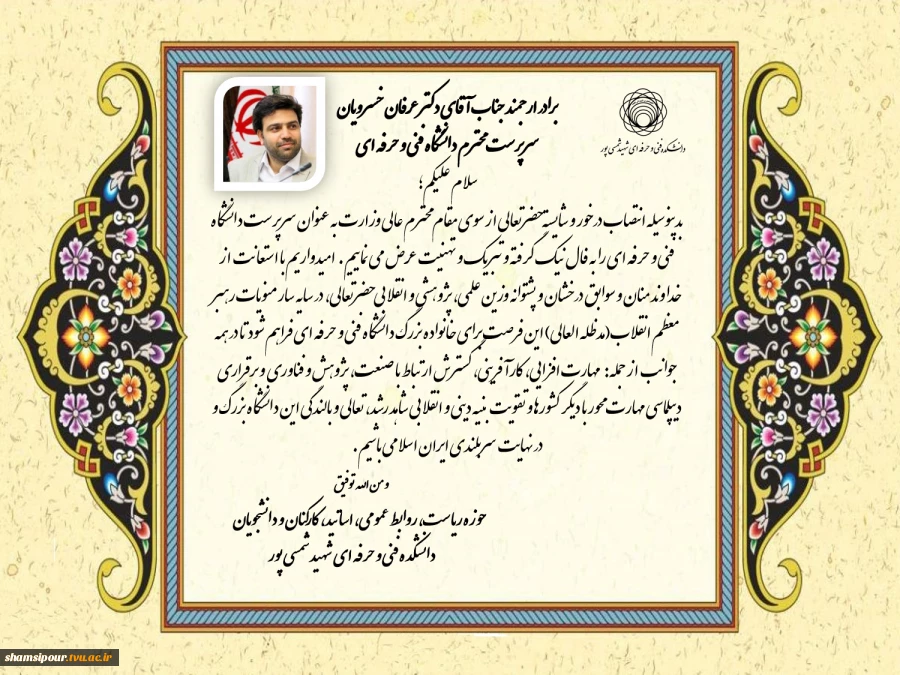 برادر ارجمند جناب آقای دکتر عرفان خسرویان
سرپرست محترم دانشگاه فنی و حرفه ای
دانشکده فنی و حرفه ای شهید شمسی پور
سلام علیکم؛
بدینوسیله انتصاب درخور و شایسته حضرتعالی از سوی مقام محترم عالی وزارت به عنوان سرپرست دانشگاه
فنی و حرفه ای را به فال نیک گرفته و تبریک و تهنیت عرض می نماییم. امیدواریم با استعانت از
خداوند منان و سوابق درخشان و پشتوانه وزین علمی، پژوهشی و انقلابی حضرتعالی، در سایه سار منویات رهبر
معظم انقلاب(مدظله العالی) این فرصت برای خانواده بزرگ دانشگاه فنی و حرفه ای فراهم شود تا در همه
جوانب از جمله: مهارت افزایی، کارآفرینی، گسترش ارتباط با صنعت، پژوهش و فناوری و برقراری
دیپلماسی مهارت محور با دیگر کشورها و تقویت بنیه دینی و انقلابی شاهد رشد، تعالی و بالندگی این دانشگاه بزرگ و
در نهایت سربلندی ایران اسلامی باشیم.
و من الله توفیق
حوزه ریاست، روابط عمومی، اساتید، کارکنان و دانشجویان
دانشکده فنی و حرفه ای شهید شمسی پور
shamsipour.tvu.ac.ir